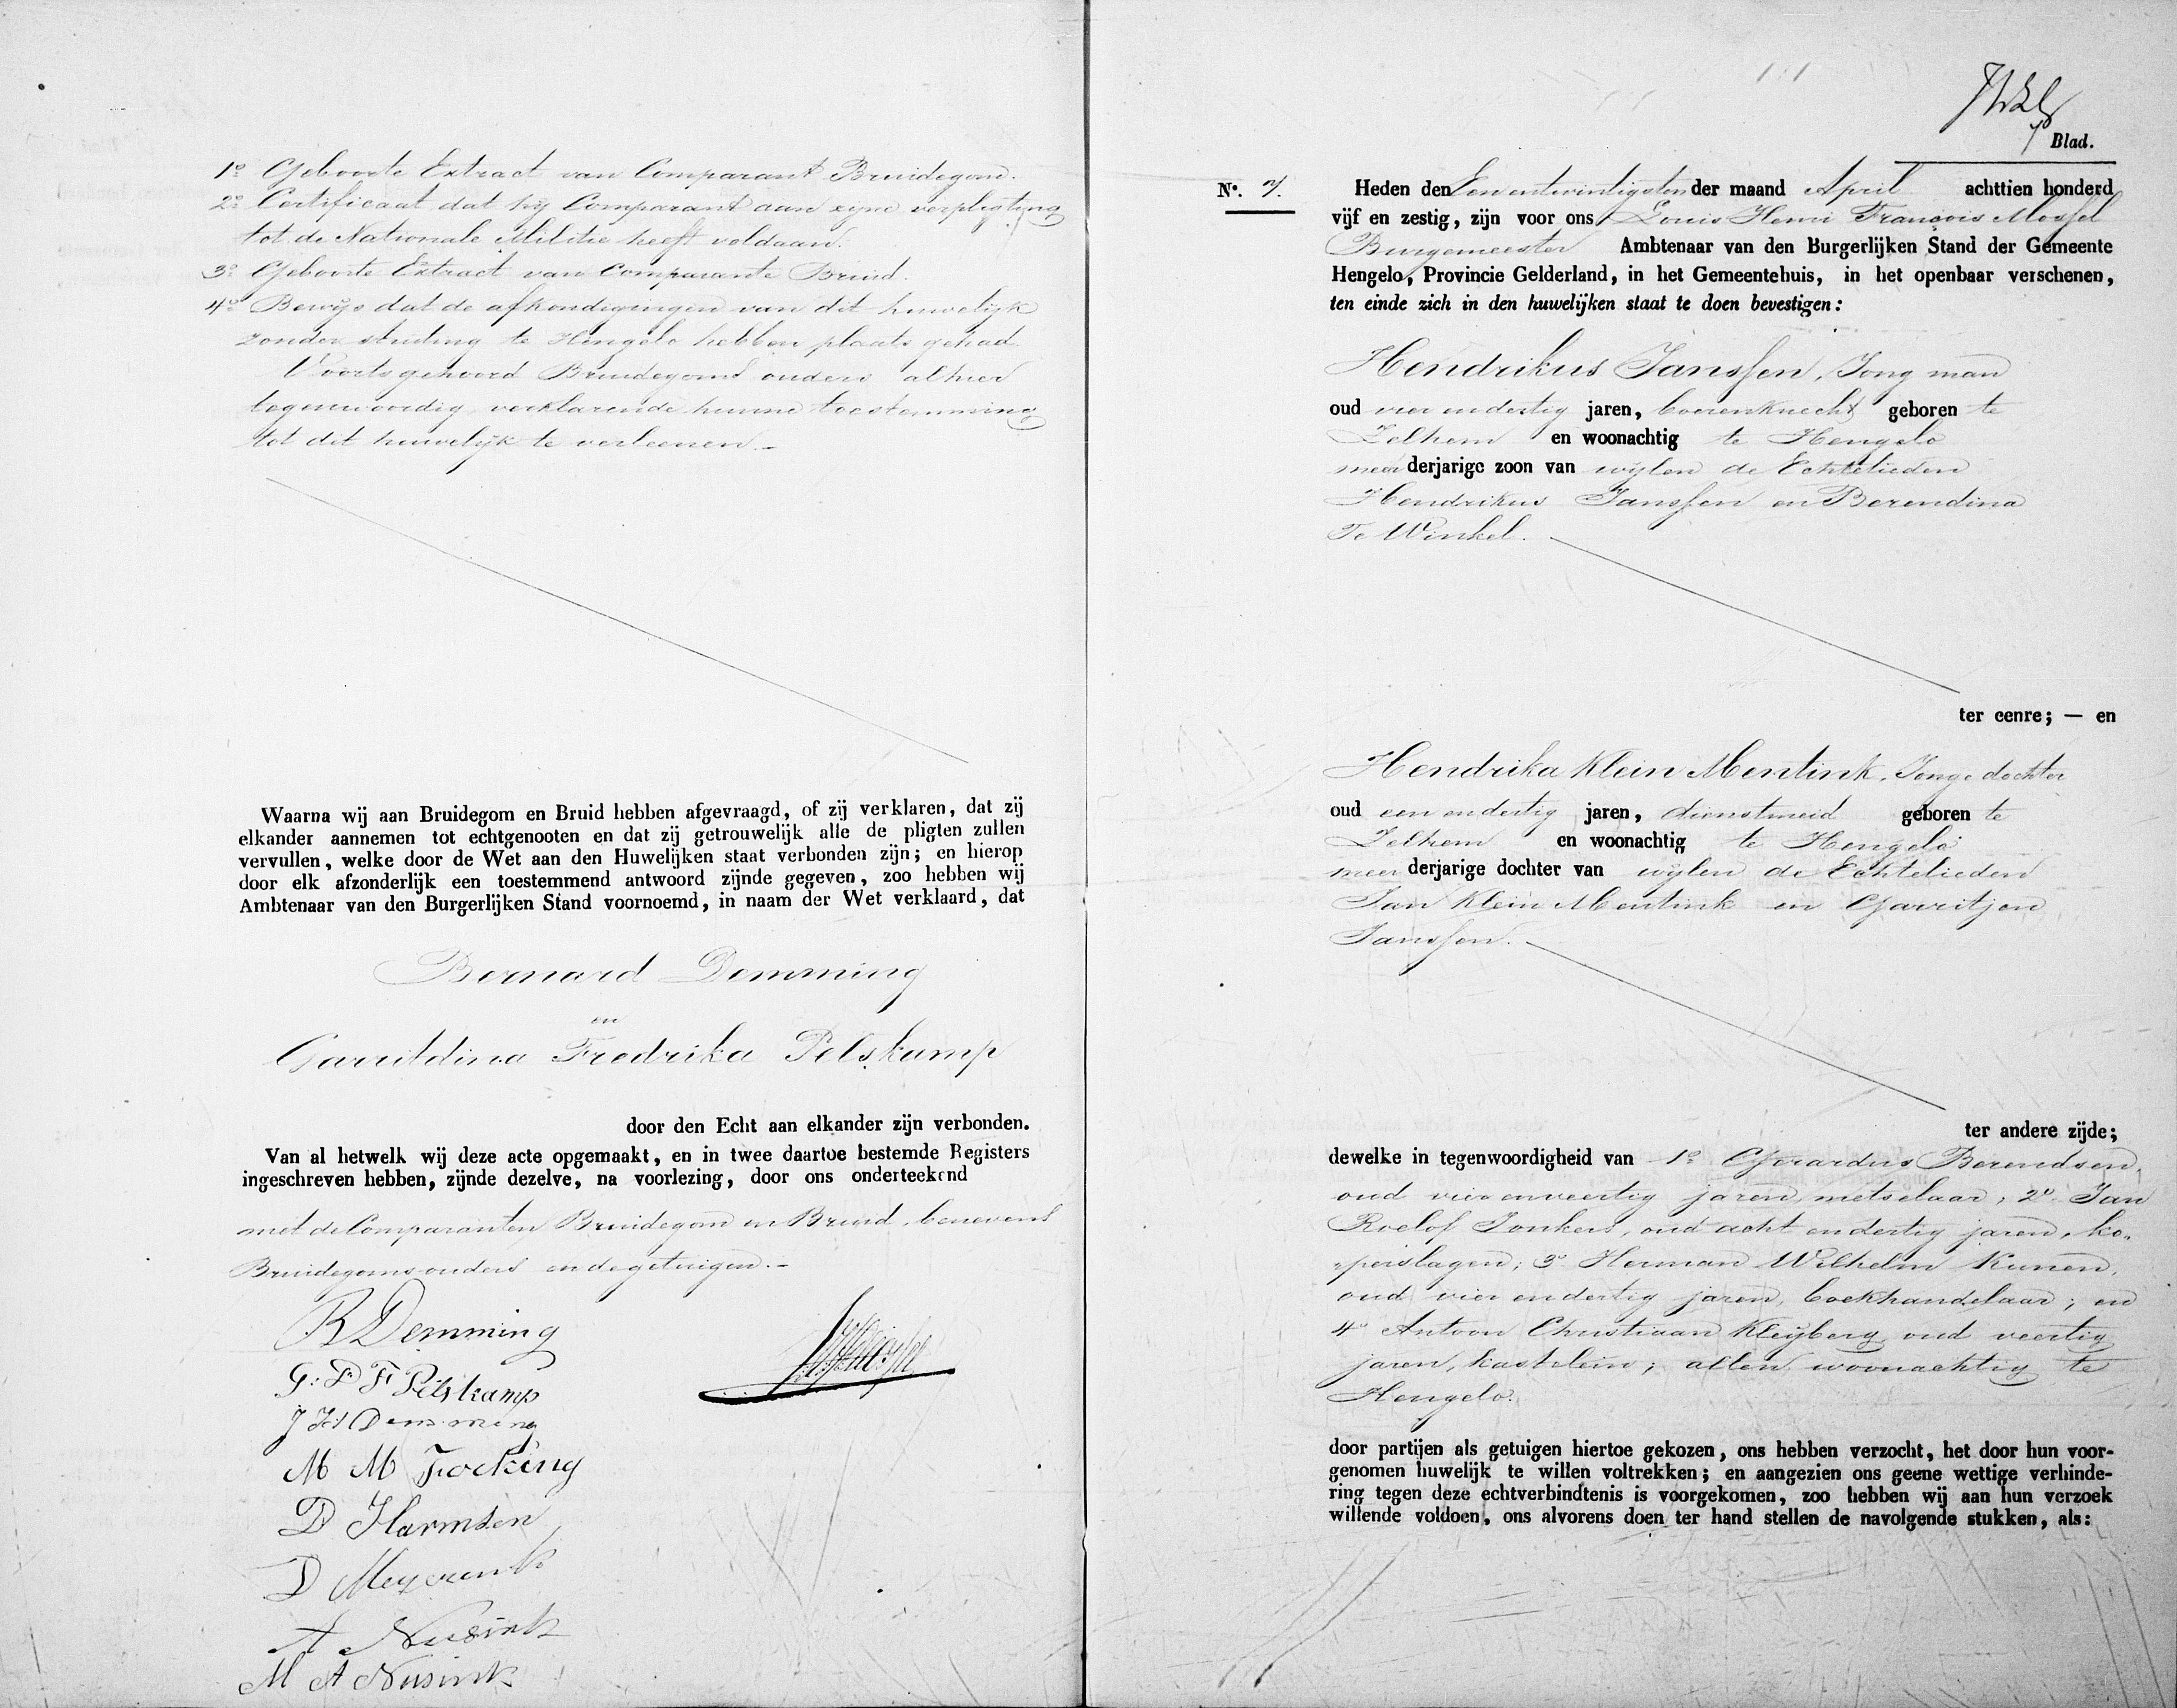 1o Geboorte Extract van Comparant Bruidegom.
2o Certificaat dat hij Comparant aan zijne verpligting
tot de Nationale Militie heeft voldaan.
3o Geboorte Extract van Comparante Bruid.
4o Bewijs dat de afkondigingen van dit huwelijk
zonder stuiting te Hengelo hebben plaats gehad.
Voorts gehoord Bruidegoms ouders alhier
tegenwoordig verklarende hunne toestemming
tot dit huwelijk te verleenen.-
Waarna wij aan Bruidegom en Bruid hebben afgevraagd, of zij verklaren, dat zij
elkander aannemen tot echtgenooten en dat zij getrouwelijk alle de pligten zullen
vervullen, welke door de Wet aan den Huwelijken staat verbonden zijn; en hierop
door elk afzonderlijk een toestemmend antwoord zijnde gegeven, zoo hebben wij
Ambtenaar van den Burgerlijken Stand voornoemd, in naam der Wet verklaard, dat
Bernard Demming
en
Garritdina Fredrika Pelskamp
door den Echt aan elkander zijn verbonden.
Van al hetwelk wij deze acte opgemaakt, en in twee daartoe bestemde Registers
ingeschreven hebben, zijnde dezelve, na voorlezing, door ons onderteekend
met de Comparanten Bruidegom en Bruid, benevens
Bruidegoms ouders en de getuigen.-
B Demming
G: D F Pelskamp
J H Demming
M M Focking
D Harmsen
D Meyerink
A Nusink
M A Nusink
Blad.
No. 7. Heden den Een entwintigsten der maand April achttien honderd
vijf en zestig, zijn voor ons Louis Henri François Mossel
Burgemeester Ambtenaar van den Burgerlijken Stand der Gemeente
Hengelo, Provincie Gelderland, in het Gemeentehuis, in het openbaar verschenen,
ten einde zich in den huwelijken staat te doen bevestigen:
Hendrikus Janssen, Jong man
oud vier en dertig jaren, boerenknecht geboren te
Zelhem en woonachtig te Hengelo
meerderjarige zoon van wijlen de Echtelieden
Hendrikus Janssen en Berendina
Te Winkel.
ter eenre; — en
Hendrika Klein Mentink, Jonge dochter
oud een en dertig jaren, dienstmeid geboren te
Zelhem en woonachtig te Hengelo
meerderjarige dochter van wijlen de Echtelieden
Jan Klein Mentink en Garritjen
Janssen.
ter andere zijde;
dewelke in tegenwoordigheid van 1o Gerardus Berendsen,
oud vier enveertig jaren, metselaar; 2o Jan
Roelof Jonkers, oud acht en dertig jaren, ko-
perslager; 3o Herman Wilhelm Kunen,
oud vier en dertig jaren, boekhandelaar; en
4o Antoon Christiaan Kleyberg oud veertig
jaren, kastelein; allen woonachtig te
Hengelo.
door partijen als getuigen hiertoe gekozen, ons hebben verzocht, het door hun voor-
genomen huwelijk te willen voltrekken; en aangezien ons geene wettige verhinde-
ring tegen deze echtverbindtenis is voorgekomen, zoo hebben wij aan hun verzoek
willende voldoen, ons alvorens doen ter hand stellen de navolgende stukken, als: